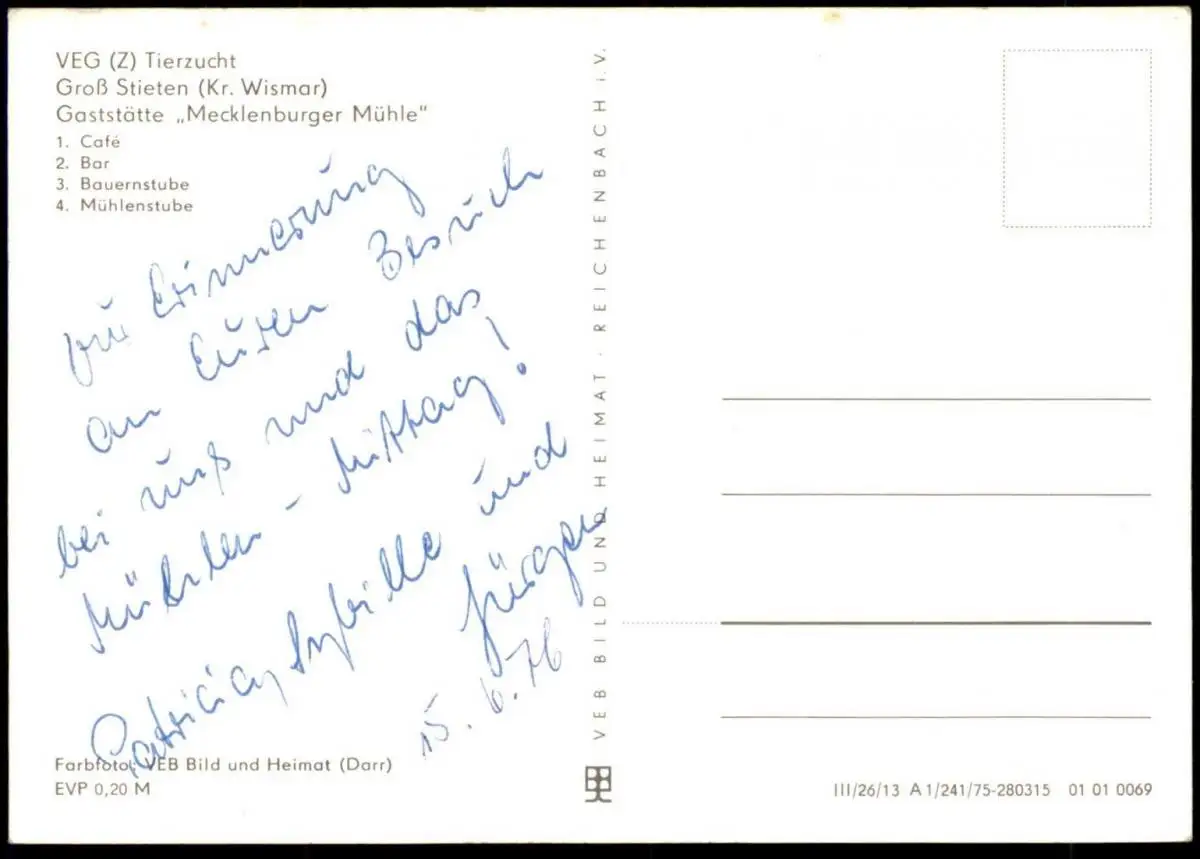 VEG (Z) Tierzucht
Groß Stieten (Kr. Wismar)
Gaststätte „Mecklenburger Mühle“
1. Café
2. Bar
3. Bauernstube
4. Mühlenstube
zur Erinnerung
an Euren Besuch
bei uns und das
Mühlen - Mittag!
Patricia, Sybille und
Jürgen
15.6.76
VEB BILD UND HEIMAT · REICHENBACH i.V.
Farbfoto: VEB Bild und Heimat (Darr)
EVP 0,20 M
III/26/13 A 1/241/75-280315 01 01 0069